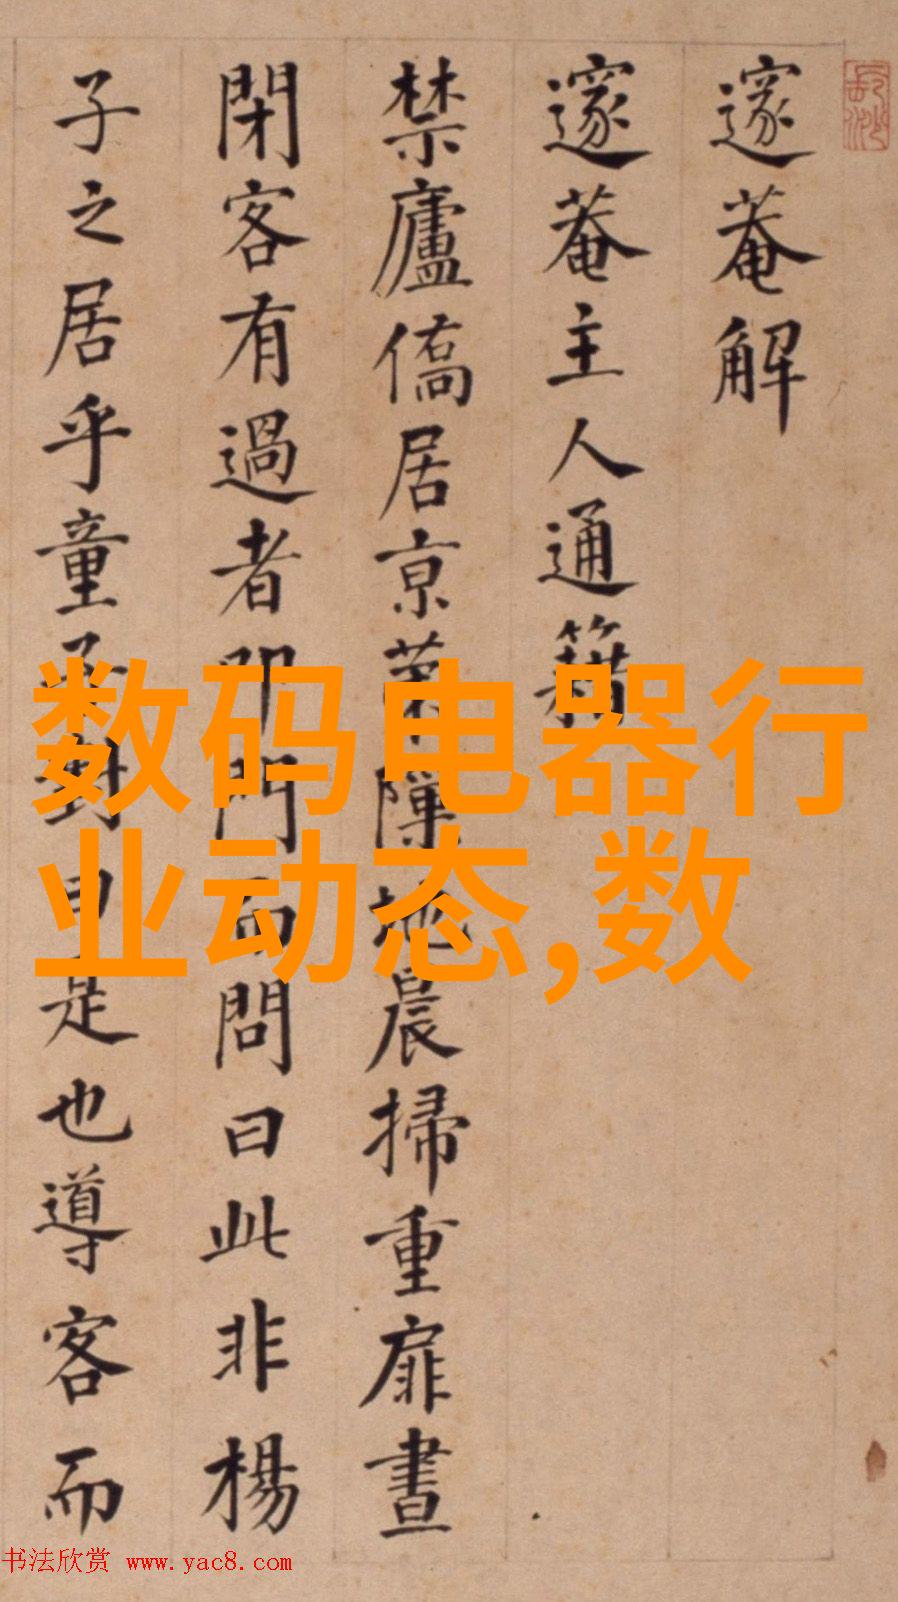 邃菴解
邃菴主人通籍
禁廬僑居京第隙地晨掃重扉晝
閉客有過者叩門而問曰此非楊
子之居乎童子對曰是也導客而
数码电器行
业动态,数
书法欣赏 www.yac8.com